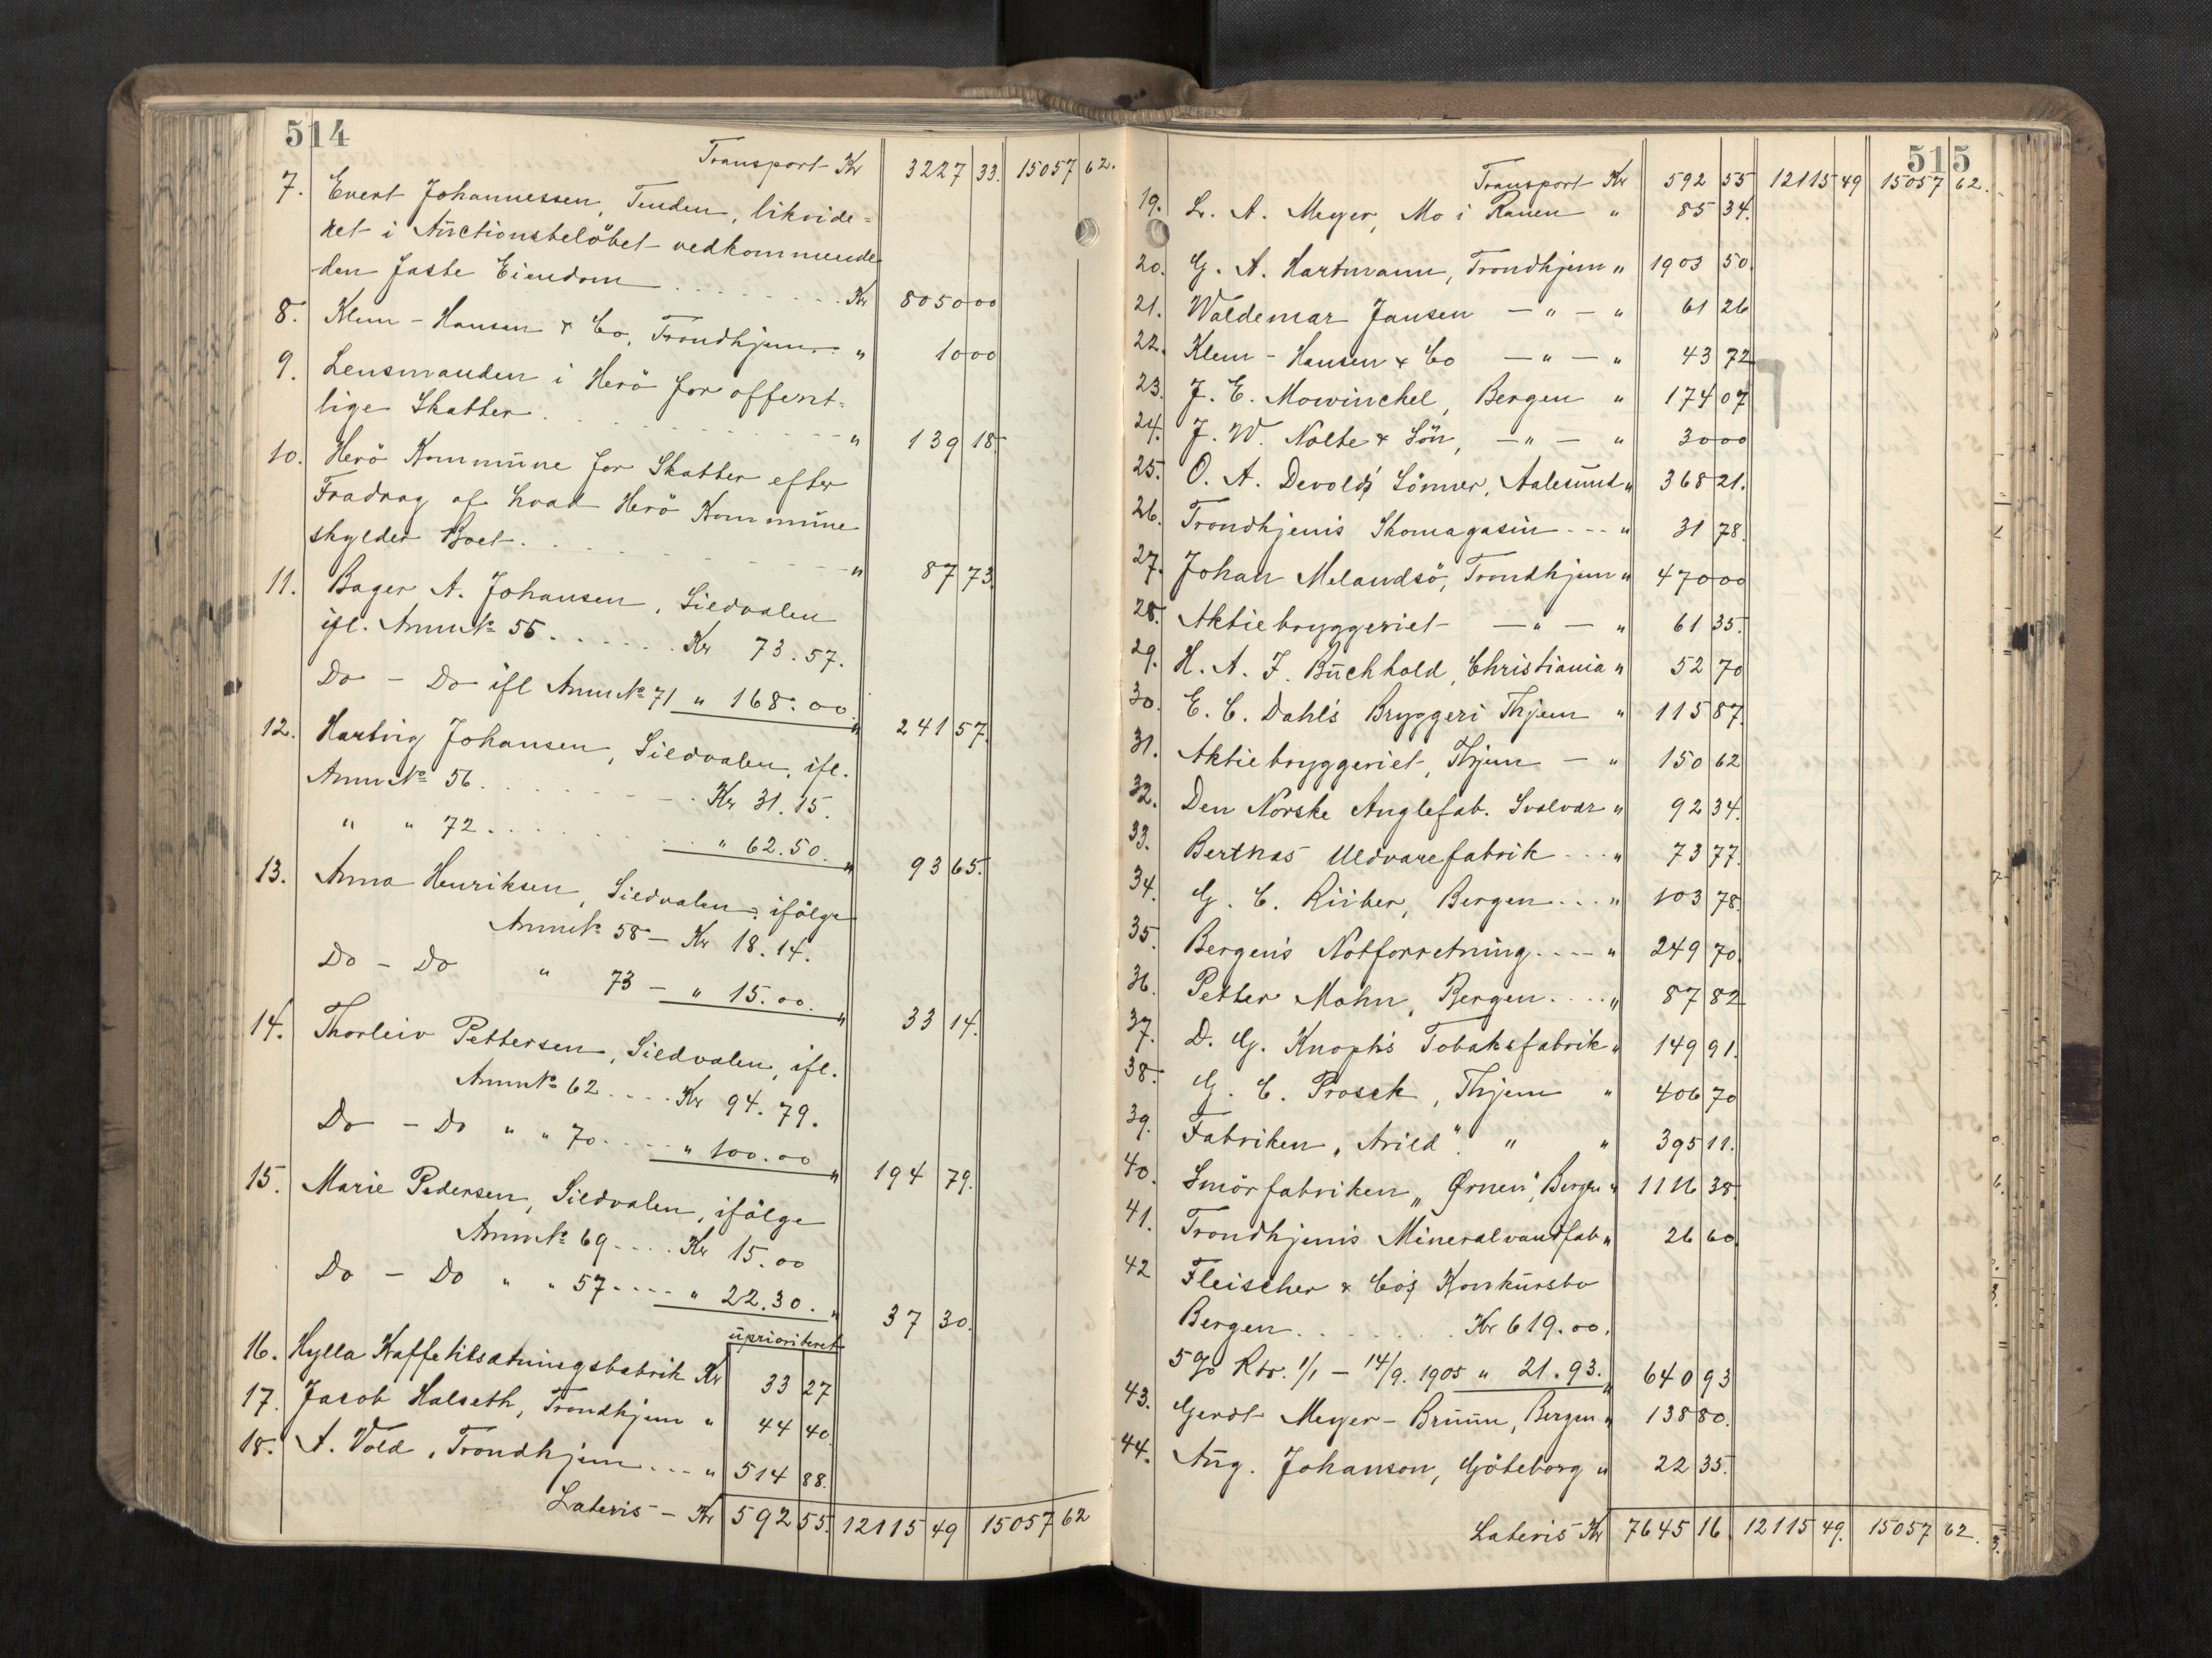 514
Transport Kr 3227 33. 15057 62.
7. Evert Johannessen, Tenden, likvide=
ret i Auctionsbeløbet vedkommende
den faste Eiendom . . . . . . . . . Kr 8050 00
8. Klem - Hansen & Co, Trondhjem . . " 10 00
9. Lensmanden i Herö for offent=
lige Skatter . . . . . . . . . . . . . " 139 18.
10. Herö Kommune for Skatter efter
Fradrag af hvad Herö Kommune
skylder Boet . . . . . . . . . . . . . " 87 73.
11. Bager A. Johansen, Sildvalen
ifl. Anm № 55 . . . . . . Kr 73.57.
Do - Do ifl Anm № 71 " 168.00. " 241 57.
12. Hartvig Johansen, Sildvalen, ifl.
Anm № 56 . . . . . . . . Kr 31.15.
" " 72 . . . . . . . . . " 62.50. " 93 65.
13. Anna Henriksen, Sildvalen, ifölge
Anm № 58 - Kr 18.14.
Do - Do " 73 - " 15.00. " 33 14.
14. Thorleiv Pettersen, Sildvalen, ifl.
Anm № 62 . . . . Kr 94.79.
Do - Do " " 70 . . . . " 100.00 " 194 79.
15. Marie Pedersen, Sildvalen, ifölge
Anm № 69 . . . . Kr 15.00
Do - Do " " 57 . . . . " 22.30. " 37 30.
uprioriteret
16. Hylla Kaffetilsætningsfabrik Kr 33 27
17. Jacob Halseth, Trondhjem " 44 40.
18. A. Vold, Trondhjem . . . " 514 88.
Lateris - Kr 592 55. 12115 49 15057 62
515
Transport Kr 592 55 12115 49 15057 62.
19. L. A. Meyer, Mo i Ranen " 85 34.
20. G. A. Hartmann, Trondhjem " 1903 50.
21. Waldemar Jansen - " - " 61 26
22. Klem - Hansen & Co - " - " 43 72
23. J. E. Mowinckel, Bergen " 174 07
24. J. W. Nolte & Sön, - " - " 30 00
25. O. A. Devold's Sönner, Aalesund " 368 21.
26. Trondhjem's Skomagasin . . . " 31 78.
27. Johan Melandsö, Trondhjem " 470 00
28. Aktiebryggeriet - " - " 61 35.
29. H. A. F. Buchhold, Christiania " 52 70
30. E. C. Dahl's Bryggeri Thjem " 115 87.
31. Aktiebryggeriet, Thjem - " 150 62
32. Den Norske Anglefab. Svolvær " 92 34.
33. Bertnæs Uldvarefabrik . . . " 73 77.
34. G. C. Riiber, Bergen . . . " 103 78.
35. Bergen's Notforretning . . . . " 249 70.
36. Petter Mohn, Bergen . . . . " 87 82
37. D. G. Knoph's Tobaksfabrik " 149 91.
38. G. C. Prosch, Thjem " 406 70
39. Fabriken "Arild". " " 395 11.
40. Smörfabriken "Ørnen", Bergen " 1116 38
41. Trondhjem's Mineralvandfab " 26 60.
42 Fleischer & Co's Konkursbo
Bergen . . . . . . . . Kr 619.00.
5% Rtr. 1/1 - 14/9. 1905 " 21.93. " 640 93
43. Gerdt Meyer - Bruun, Bergen " 138 80.
44. Aug. Johanson, Göteborg " 22 35.
Lateris Kr 7645 16. 12115 49. 15057 62.